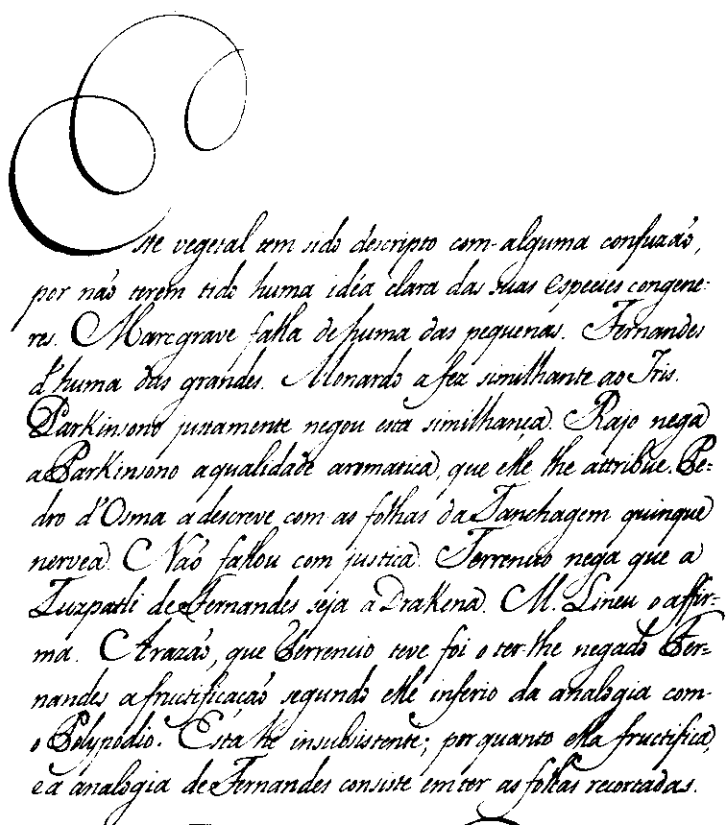 Este vegetal tem sido descripto com alguma confuzaõ,
por naõ terem tido huma idéa clara das suas especies congene:
res. Marcgrave falla de huma das pequenas. Fernandes
d'huma das grandes. Monardo a fez similhante ao Iris.
Parkinsono justamente negou esta similhança. Rajo nega
a Parkinsono a qualidade aromatica, que elle lhe attribue. Pe:
dro d'Osma a descreve com as folhas da Tanchagem quinque
nervea. Naõ fallou com justiça. Terrencio nega que a
Tuzpatli de Fernandes seja a Drakena. M. Lineu o affir=
ma. A razaõ, que Terrencio teve foi o ter-lhe negado Fer=
nandes a fructificaçaõ segundo elle inferio da analogia com
o Polypodio. Esta hé insubsistente; por quanto ella fructifica,
e a analogia de Fernandes consiste em ter as folhas recortadas.